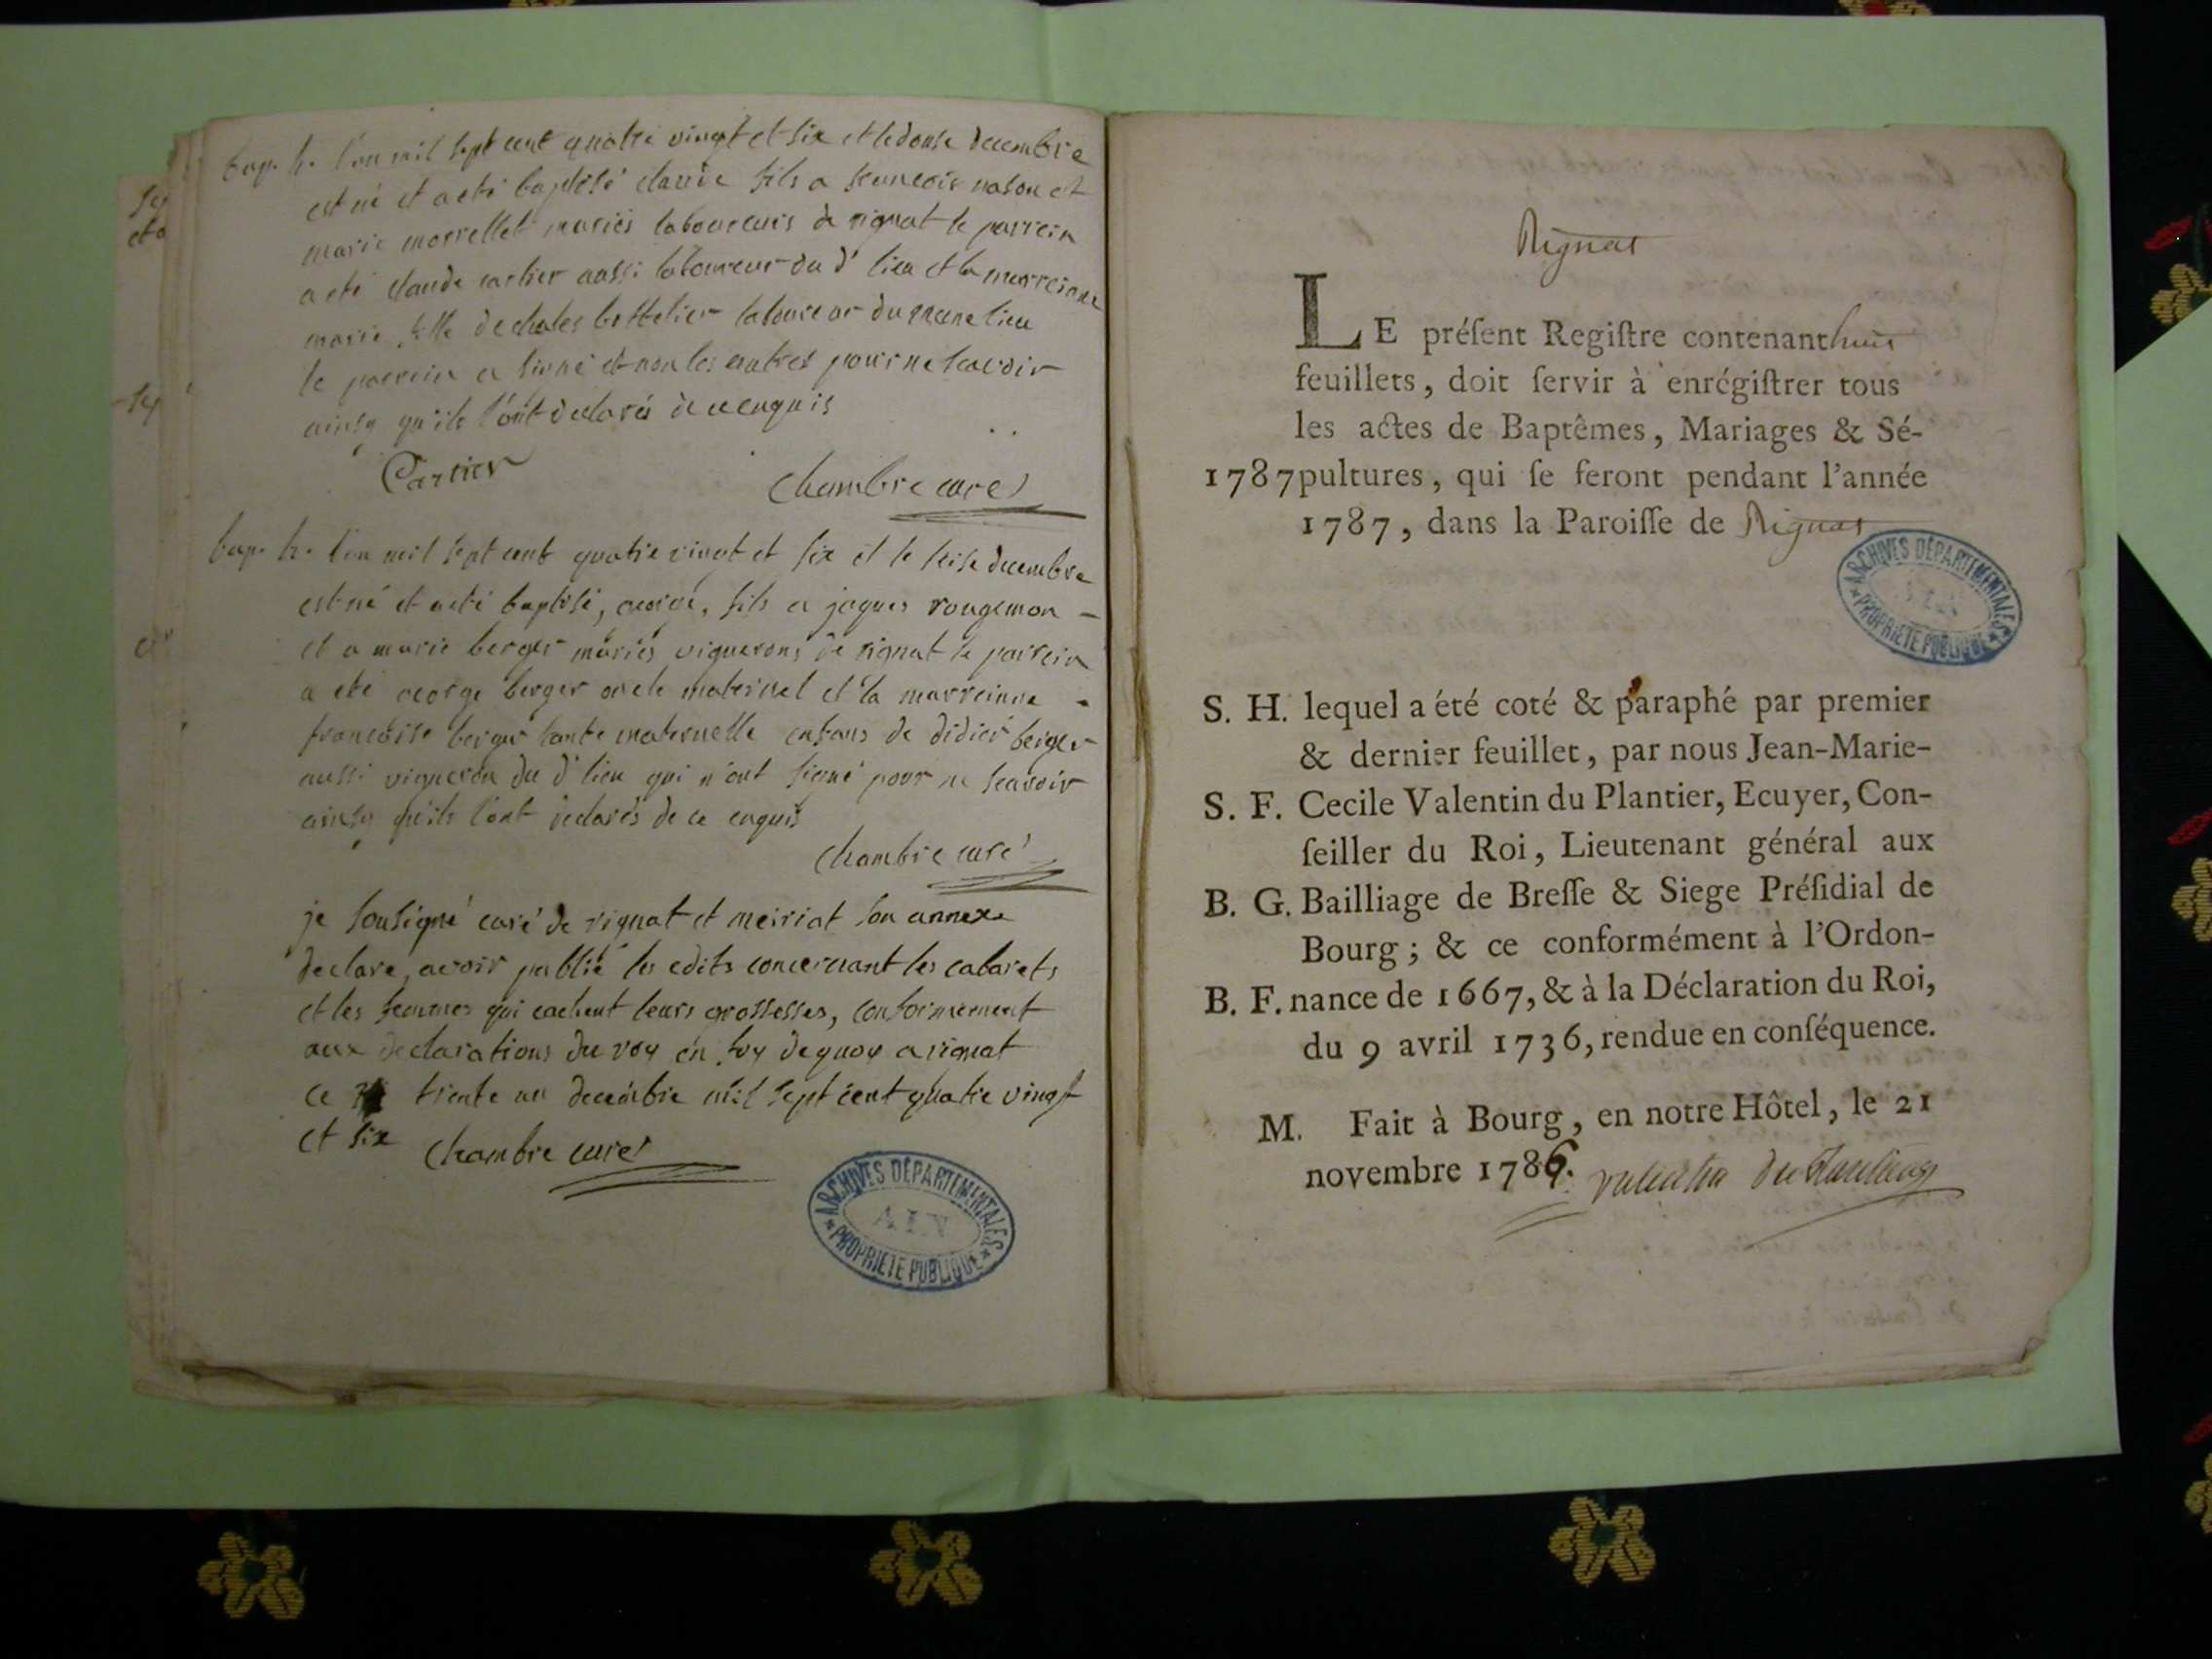 bap. h. l'an mil sept cent quatre vingt et six et le douse decembre
est né et a eté baptisé claude fils a francois nason et
marie morrellet mariés laboureurs de rignat le parrein
a eté claude cartier aussi laboureur du d' lieu et la marreinne
marie fille de
laboureur du meme lieu
le parrein a signé et non les autres pour ne scavoir
ainsy qu'ils l'ont declarés de ce enquis
Cartier
Chambre curé
bap. h. l'an mil sept cent quatre vingt et six et le seise decembre
est né et a eté baptisé, george, fils a jaques rougemon -
et a marie berger mariés vignerons de rignat le parrein
a eté george berger oncle maternel et la marreinne -
francoise berger tante maternelle enfans de didier berger
aussi vigneron du d' lieu qui n'ont signé pour ne scavoir
ainsy qu'ils l'ont declarés de ce enquis
Chambre curé
je sousigné curé de rignat et meiriat son annexe
declare, avoir publié les edits concernant les cabarets
et les femmes qui cachent leurs grossesses, conformement
aux declarations du roy en foy de quoy a rignat
ce trente un decembre mil sept cent quatre vingt
et six Chambre curé
ARCHIVES DÉPARTEMENTALES
AIN
PROPRIÉTÉ PUBLIQUE
Rignat
LE préſent Regiſtre contenant huit
feuillets, doit ſervir à enrégiſtrer tous
les actes de Baptêmes, Mariages & Sé-
1787 pultures, qui ſe feront pendant l'année
1787, dans la Paroiſſe de Rignat
ARCHIVES DÉPARTEMENTALES
PROPRIÉTÉ PUBLIQUE
S. H. lequel a été coté & paraphé par premier
& dernier feuillet, par nous Jean-Marie-
S. F. Cecile Valentin du Plantier, Ecuyer, Con-
ſeiller du Roi, Lieutenant général aux
B. G. Bailliage de Breſſe & Siege Préſidial de
Bourg ; & ce conformément à l'Ordon-
B. F. nance de 1667, & à la Déclaration du Roi,
du 9 avril 1736, rendue en conſéquence.
M. Fait à Bourg, en notre Hôtel, le 21
novembre 1786. Valentin du Plantier